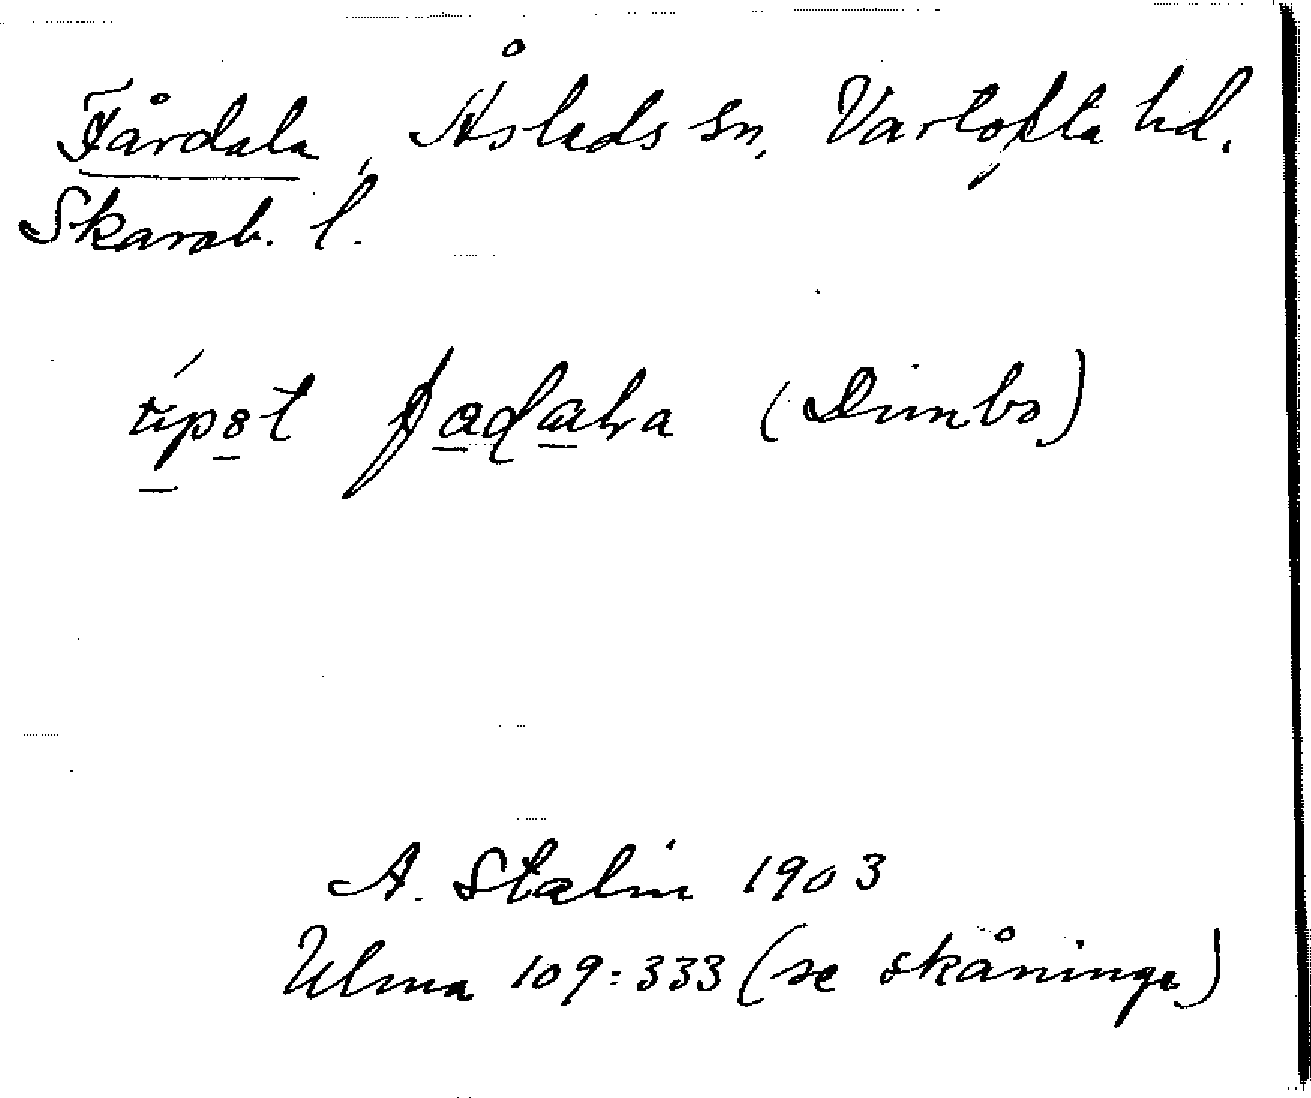 Fårdala, Åsleds sn, Vartofta hd.
Skarab. l.
(Dimbo)
A. Stalin 1903
Ulma 109:333 (se skåninge)